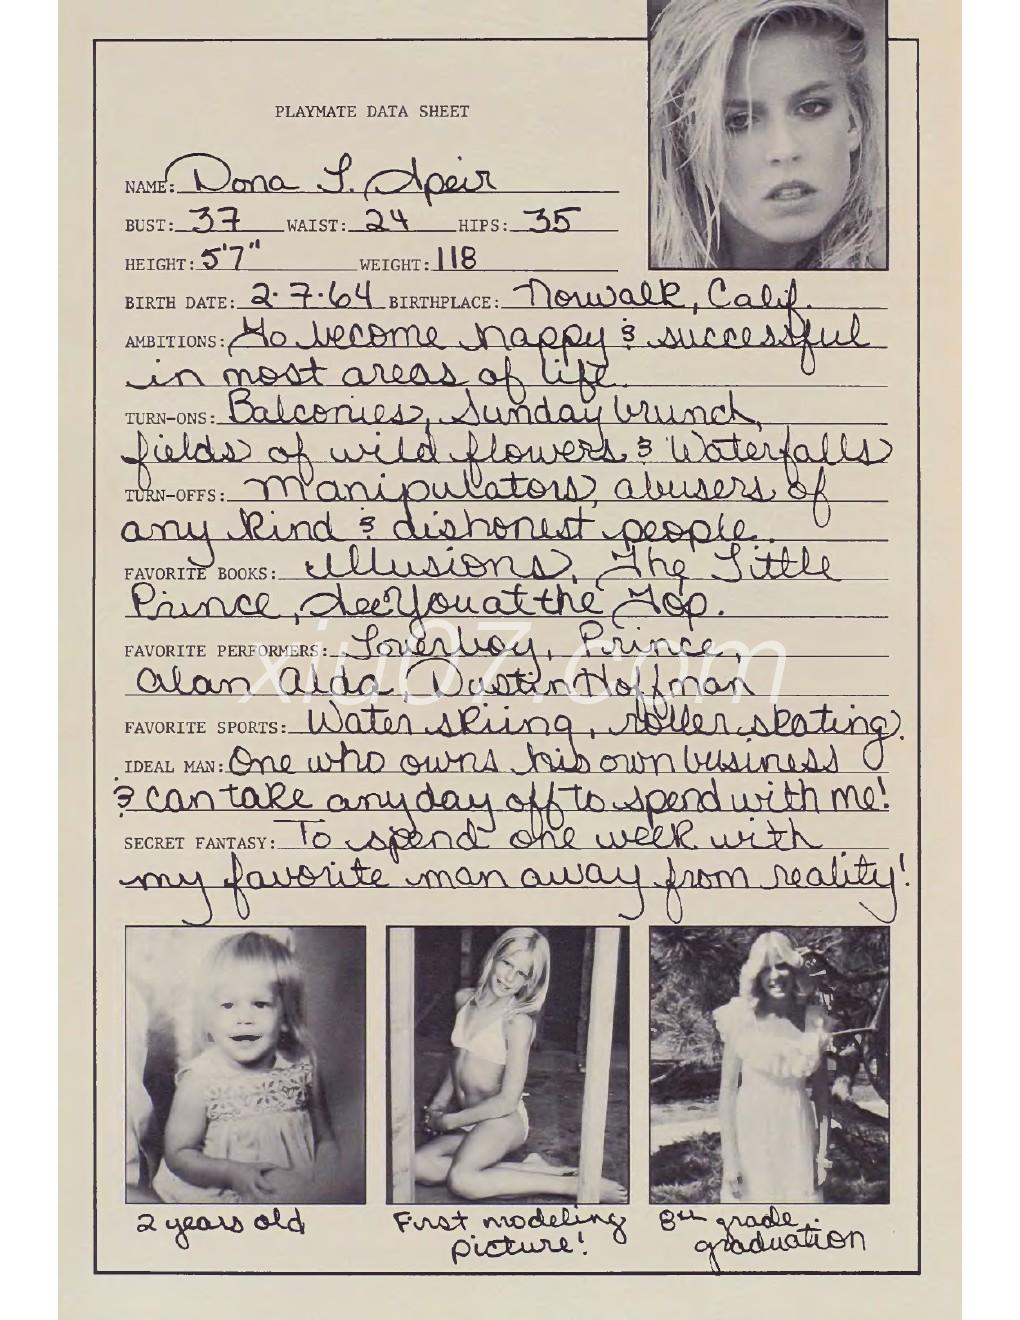 PLAYMATE DATA SHEET
NAME: Dona L. Speir
BUST: 37 WAIST: 24 HIPS: 35
HEIGHT: 5'7" WEIGHT: 118
BIRTH DATE: 2·7·64 BIRTHPLACE: Norwalk, Calif.
AMBITIONS: To become happy & successful
in most areas of life.
TURN-ONS: Balconies, Sunday brunch,
fields of wild flowers & Waterfalls
TURN-OFFS: Manipulators, abusers of
any kind & dishonest people.
FAVORITE BOOKS: Illusions, The Little
Prince, See You at the Top.
FAVORITE PERFORMERS: Loverboy, Prince,
xiu07.com
Alan Alda, Dustin Hoffman
FAVORITE SPORTS: Water skiing, roller skating.
IDEAL MAN: One who owns his own business
& can take any day off to spend with me!
SECRET FANTASY: To spend one week with
my favorite man away from reality!
2 years old
First modeling
picture!
8th grade
graduation